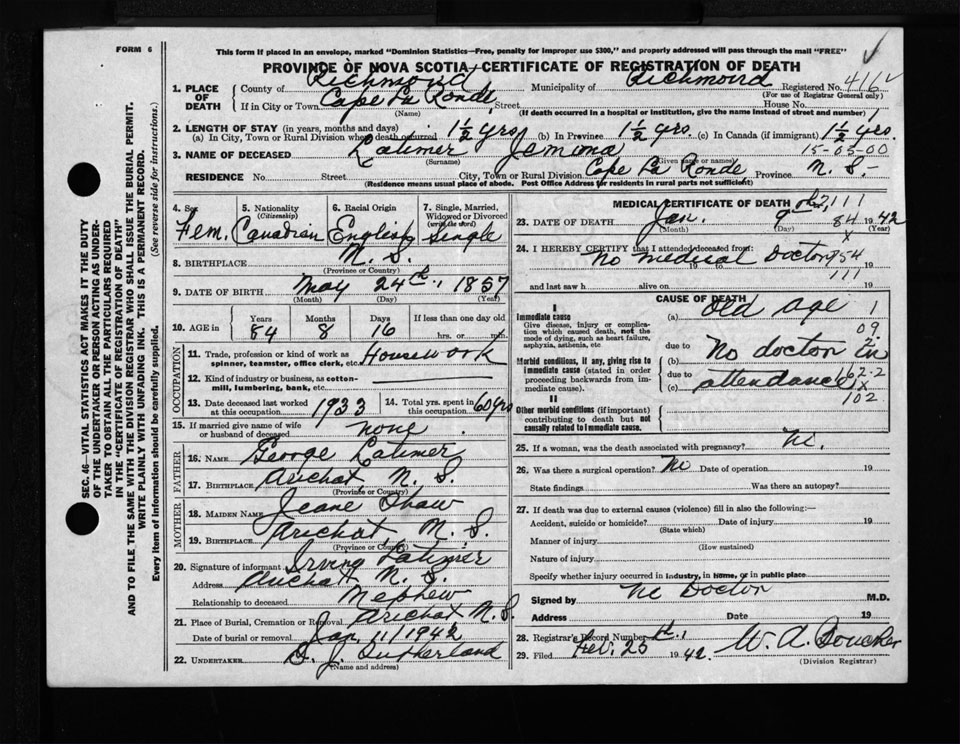 FORM 6
This form if placed in an envelope, marked "Dominion Statistics—Free, penalty for improper use $300," and properly addressed will pass through the mail "FREE"
PROVINCE OF NOVA SCOTIA CERTIFICATE OF REGISTRATION OF DEATH
1. PLACE OF DEATH
County of Richmond Municipality of Richmond Registered No. 416
(For use of Registrar General only)
If in City or Town Cape La Ronde Street House No.
(Name) (If death occurred in a hospital or institution, give the name instead of street and number)
2. LENGTH OF STAY (in years, months and days)
(a) In City, Town or Rural Division where death occurred 1½ yrs (b) In Province 1½ yrs. (c) In Canada (if immigrant) 1½ yrs.
15-05-00
3. NAME OF DECEASED Latimer Jemima
(Surname) (Given name or names)
RESIDENCE No. Street City, Town or Rural Division Cape La Ronde Province N. S.-
(Residence means usual place of abode. Post Office Address for residents in rural parts not sufficient)
4. Sex 5. Nationality (Citizenship) 6. Racial Origin 7. Single, Married, Widowed or Divorced (write the word)
Fem. Canadian English Single
8. BIRTHPLACE N. S.
(Province or Country)
9. DATE OF BIRTH May 24th, 1857
(Month) (Day) (Year)
10. AGE in Years Months Days If less than one day old
84 8 16 hrs. or min.
OCCUPATION
11. Trade, profession or kind of work as spinner, teamster, office clerk, etc. Housework
12. Kind of industry or business, as cotton-mill, lumbering, bank, etc.
13. Date deceased last worked at this occupation 1933 14. Total yrs. spent in this occupation 60 yrs
15. If married give name of wife or husband of deceased none.
FATHER
16. NAME George Latimer
17. BIRTHPLACE Arichat, N. S.
(Province or Country)
MOTHER
18. MAIDEN NAME Jeane Shaw
19. BIRTHPLACE Arichat, N. S.
(Province or Country)
20. Signature of informant Irving Latimer
Address Arichat, N. S.
Relationship to deceased Nephew
21. Place of Burial, Cremation or Removal Arichat N. S.
Date of burial or removal Jan 11/1942
22. UNDERTAKER D. J. Sutherland
(Name and address)
MEDICAL CERTIFICATE OF DEATH
111
23. DATE OF DEATH Jan. 9th 84 1942
(Month) (Day) (Year)
24. I HEREBY CERTIFY that I attended deceased from:
No medical Doctor 954
19 to 19
111
and last saw h alive on 19
CAUSE OF DEATH
I
Immediate cause
Give disease, injury or complication which caused death, not the mode of dying, such as heart failure, asphyxia, asthenia, etc.
(a) Old age 1
09
2
Morbid conditions, if any, giving rise to immediate cause (stated in order proceeding backwards from immediate cause).
due to
(b) No doctor in
due to
(c) attendance 162-2
X
102
II
Other morbid conditions (if important) contributing to death but not causally related to immediate cause.
25. If a woman, was the death associated with pregnancy? No.
26. Was there a surgical operation? No Date of operation 19
State findings Was there an autopsy?
27. If death was due to external causes (violence) fill in also the following:—
Accident, suicide or homicide? Date of injury 19
(State which)
Manner of injury
(How sustained)
Nature of injury
Specify whether injury occurred in industry, in home, or in public place
Signed by No Doctor M.D.
Address Date 19
28. Registrar's Record Number 1
29. Filed Feb. 25 1942. W. A. Boucher
(Division Registrar)
SEC. 46—VITAL STATISTICS ACT MAKES IT THE DUTY
OF THE UNDERTAKER OR PERSON ACTING AS UNDER-
TAKER TO OBTAIN ALL THE PARTICULARS REQUIRED
IN THE "CERTIFICATE OF REGISTRATION OF DEATH"
AND TO FILE THE SAME WITH THE DIVISION REGISTRAR WHO SHALL ISSUE THE BURIAL PERMIT.
WRITE PLAINLY WITH UNFADING INK. THIS IS A PERMANENT RECORD.
Every item of information should be carefully supplied. (See reverse side for instructions.)